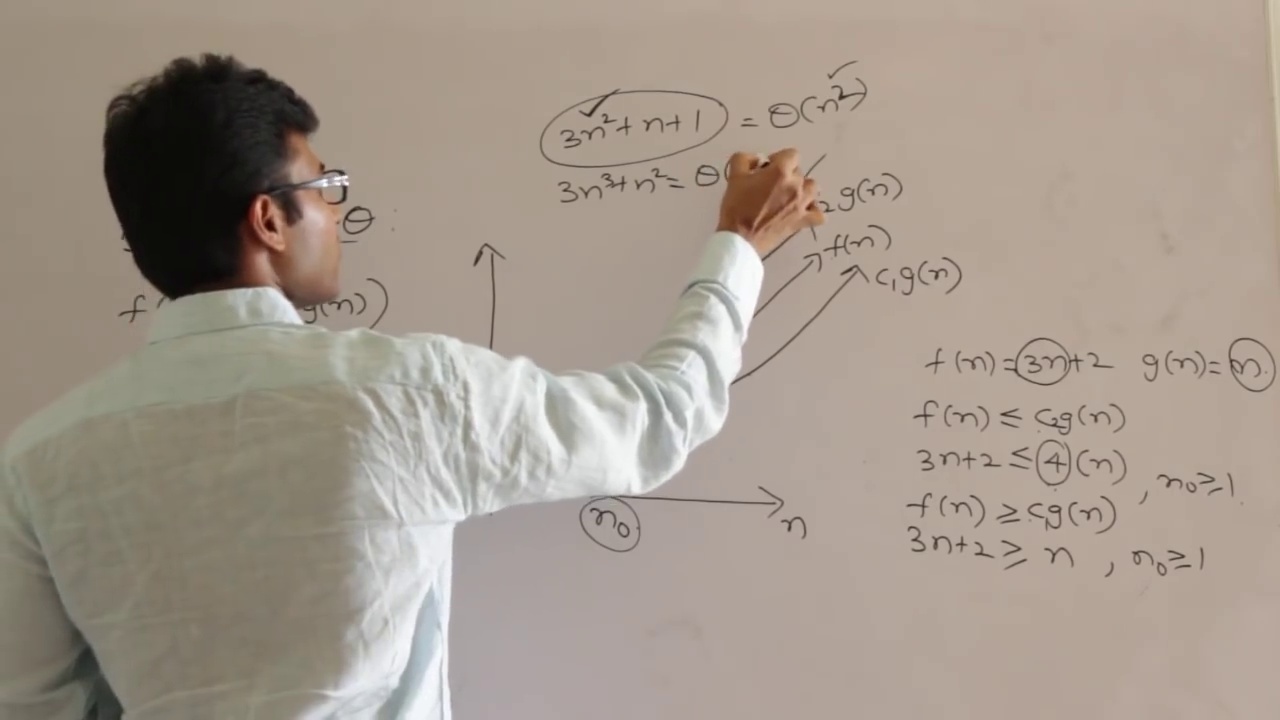 3n²+n+1 = Θ(n²)
3n³+n² = Θ(
Θ
₂g(n)
f(n)
c₁g(n)
f(
g(n))
n₀
n
f(n)=3n+2 g(n)=n.
f(n) ≤ c₂g(n)
3n+2 ≤ 4(n) , n₀≥1.
f(n) ≥ c₁g(n)
3n+2 ≥ n , n₀≥1